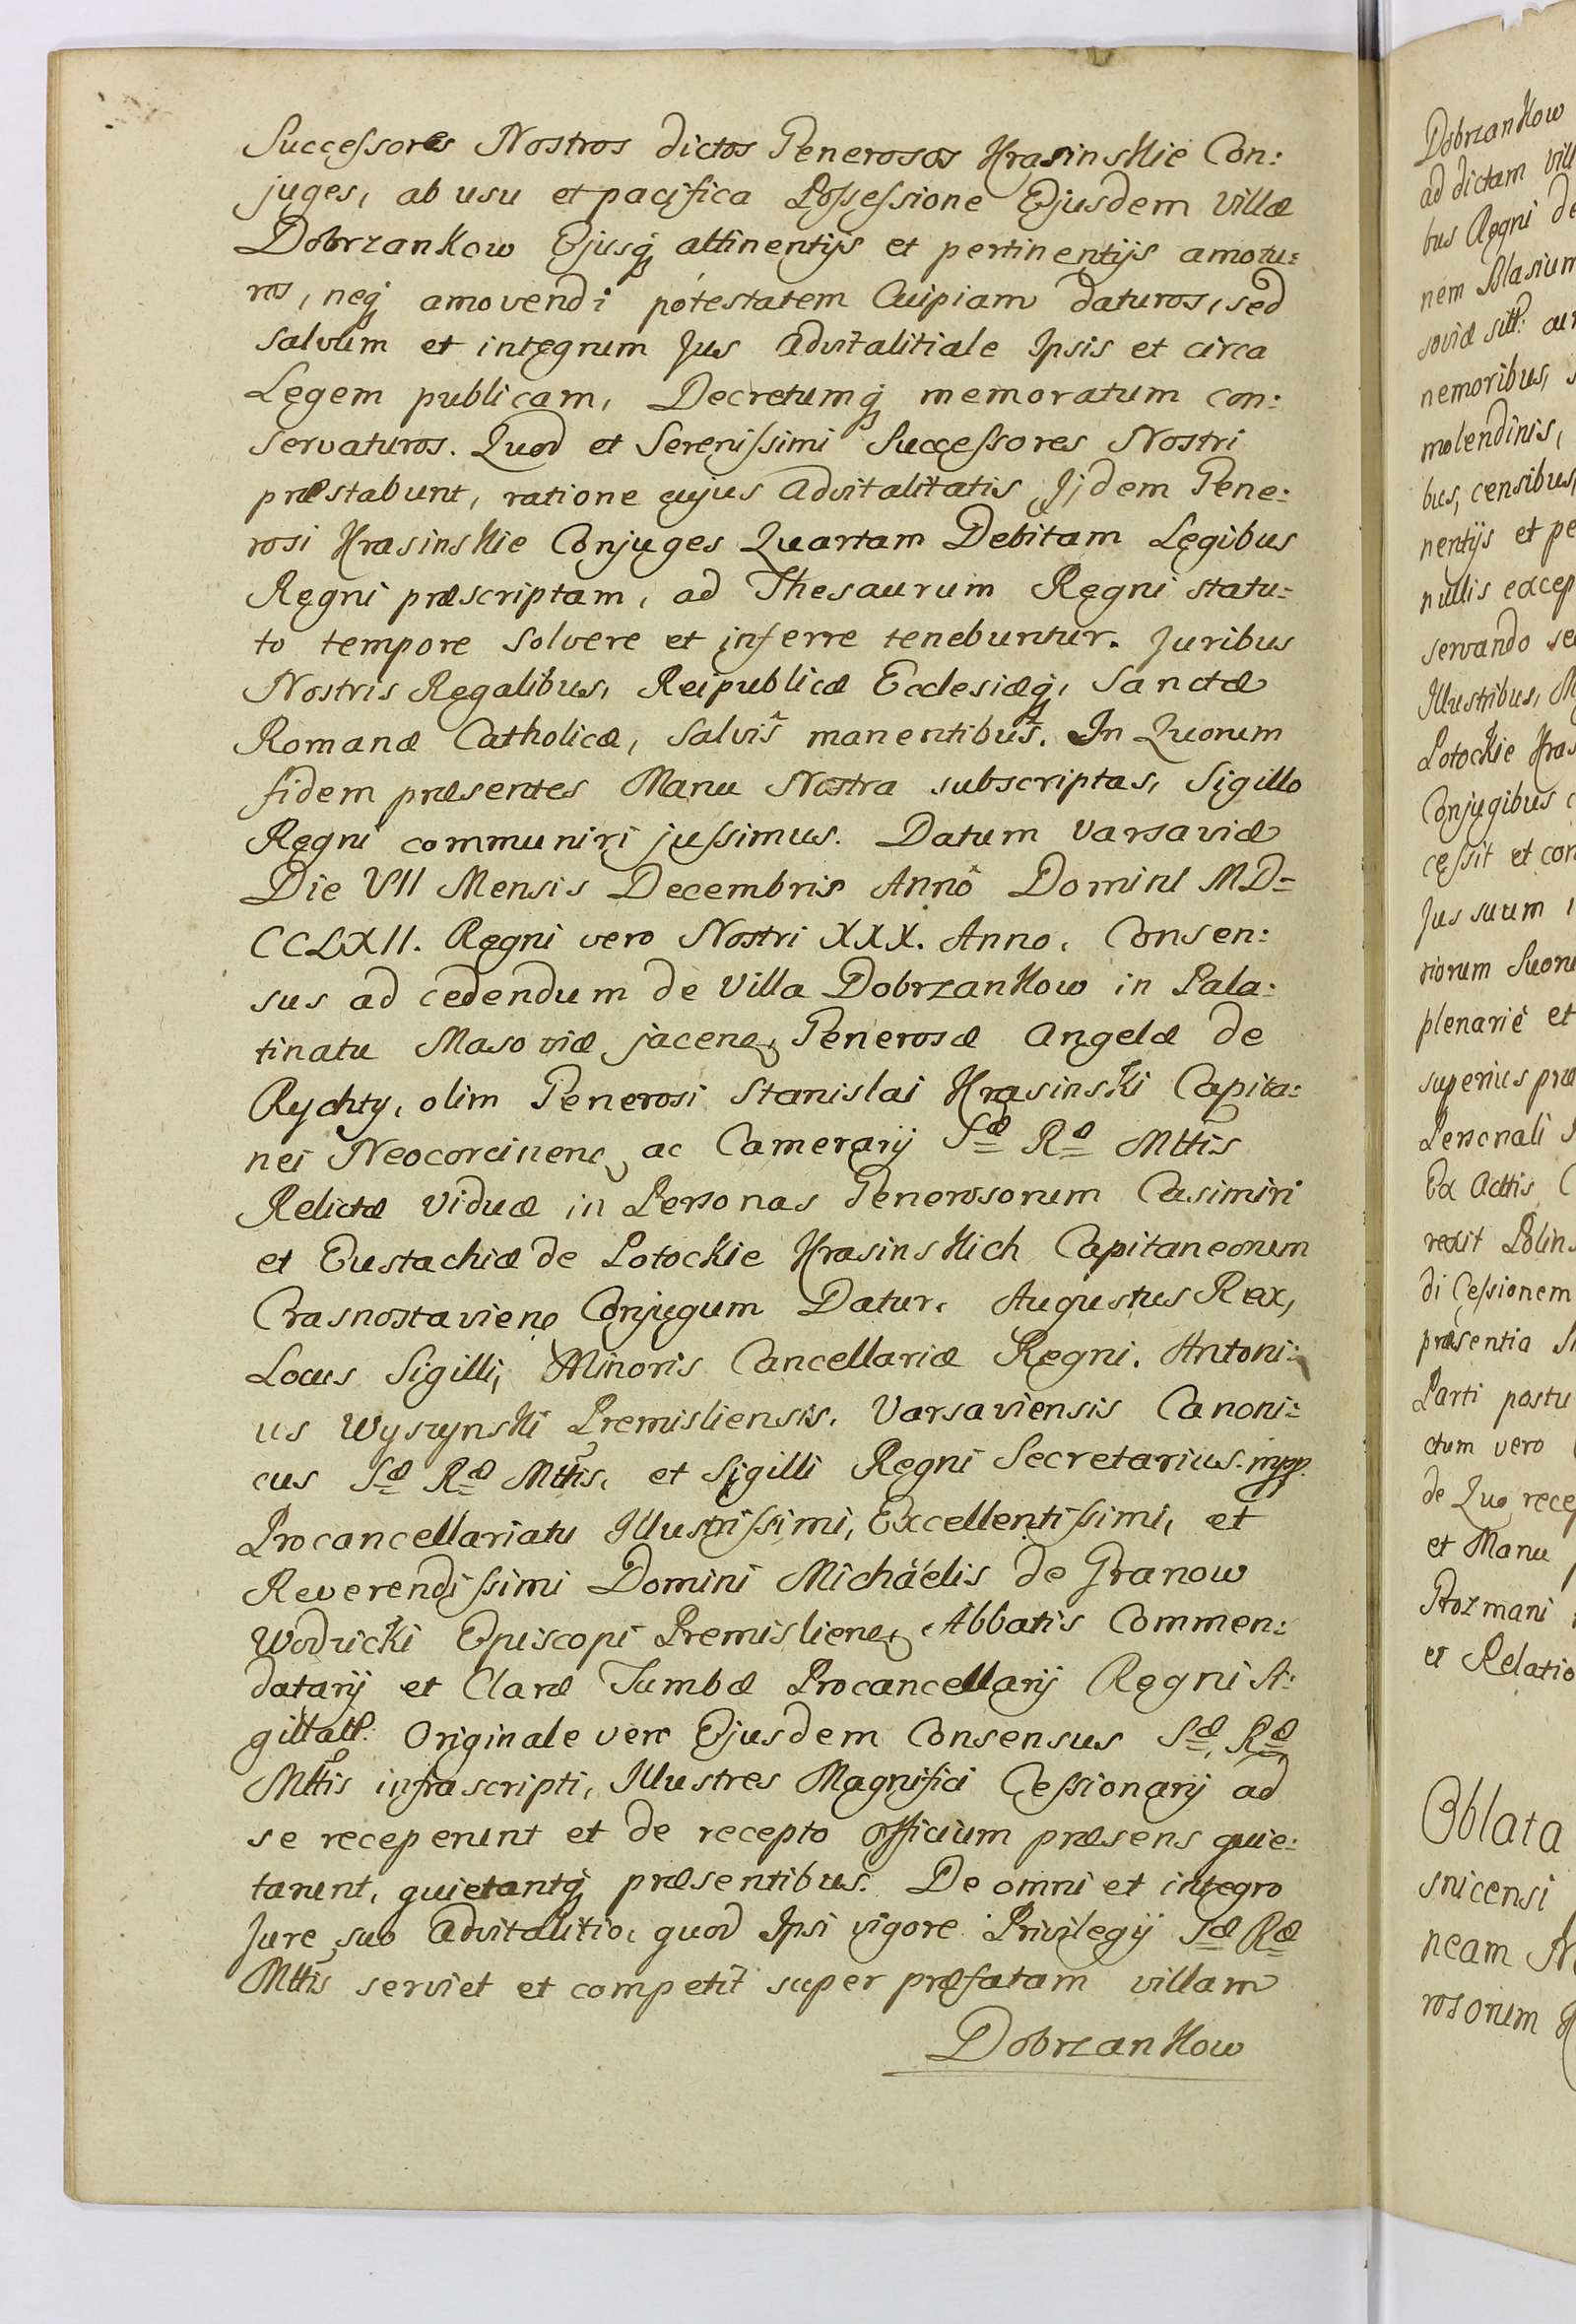 Successores Nostros dictos Generosos Krasinskie Con:
juges, ab usu et pacifica Possessione Ejusdem Villæ
Dobrzankow Ejusq; attinentijs et pertinentijs amotu=
ros, neq; amovendi potestatem Cuipiam daturos, sed
salvum et integrum Jus advitalitiale Ipsis et circa
Legem publicam, Decretumq; memoratum con:
servaturos. Quod et Serenissimi Successores Nostri
præstabunt, ratione cujus advitalitatis Ijdem Gene:
rosi Krasinskie Conjuges Quartam Debitam Legibus
Regni præscriptam, ad Thesaurum Regni statu=
to tempore solvere et inferre tenebuntur. Juribus
Nostris Regalibus, Reipublicæ Ecclesiæq; Sanctæ
Romanæ Catholicæ, salvis manentibus. In Quorum
fidem præsentes Manu Nostra subscriptas, Sigillo
Regni communiri jussimus. Datum Varsaviæ
Die VII Mensis Decembris Annô Domini MD=
CCLXII. Regni vero Nostri XXX. Anno. Consen:
sus ad cedendum de Villa Dobrzankow in Pala:
tinatu Masoviæ jacen. Generosæ Angelæ de
Rychty, olim Generosi Stanislai Krasinski Capita:
nei Neocorcinen. ac Camerarij Sæ Ræ Mttis
Relictæ Viduæ in Personas Generosorum Casimiri
et Eustachiæ de Potockie Krasinskich Capitaneorum
Crasnostavien. Conjugum Datur. Augustus Rex,
Locus Sigilli, Minoris Cancellariæ Regni. Antoni:
us Wyszynski Premisliensis, Varsaviensis Canoni=
cus Sæ Ræ Mttis, et Sigilli Regni Secretarius. mpp.
Procancellariatu Illustrissimi, Excellentissimi, et
Reverendissimi Domini Michaëlis de Granow
Wodzicki Episcopi Premislien. Abbatis Commen:
datarij et Claræ Tumbæ Procancellarij Regni Si:
gillatt. Originale vero Ejusdem Consensus Sæ, Ræ
Mttis infrascripti, Illustres Magnifici Cessionarij ad
se receperunt et de recepto officium præsens quie:
tarunt, quietantq; præsentibus. De omni et integro
Jure suo advitalitio, quod Ipsi vigore Privilegij Sæ Ræ
Mttis serviet et competit super præfatam villam
Dobrzankow
Dobrzankow
ad dictam vill
bus Regni de
nem Blasium
soviæ sitt:
nemoribus,
molendinis,
bus, censibus,
nentijs et pe
nullis excep
servando se
Illustribus, M
Potockie Kras
Conjugibus c
cessit et con
Jus suum
riorum Suor
plenariè et
superius præ
Personali
Ex Actis C
rexit Polins
di Cessionem
præsentia
Parti postu
ctum vero
de Quo rece
et Manu
Rozmani
et Relatio
Oblata
snicensi
neam
rosorum